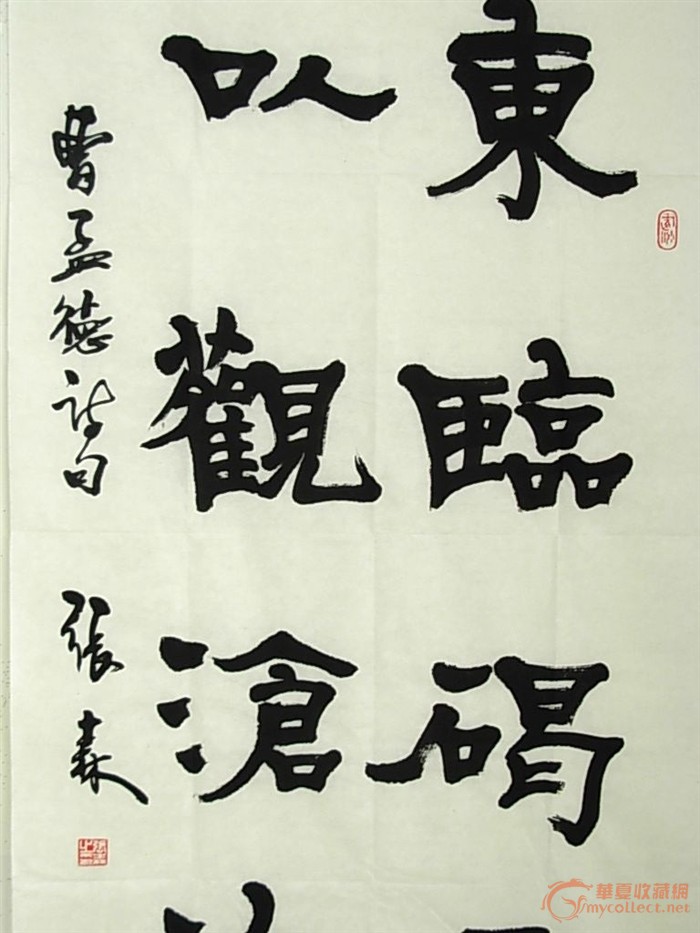 東臨碣
以觀滄
曹孟德詩句
張森
華夏收藏網
mycollect.net